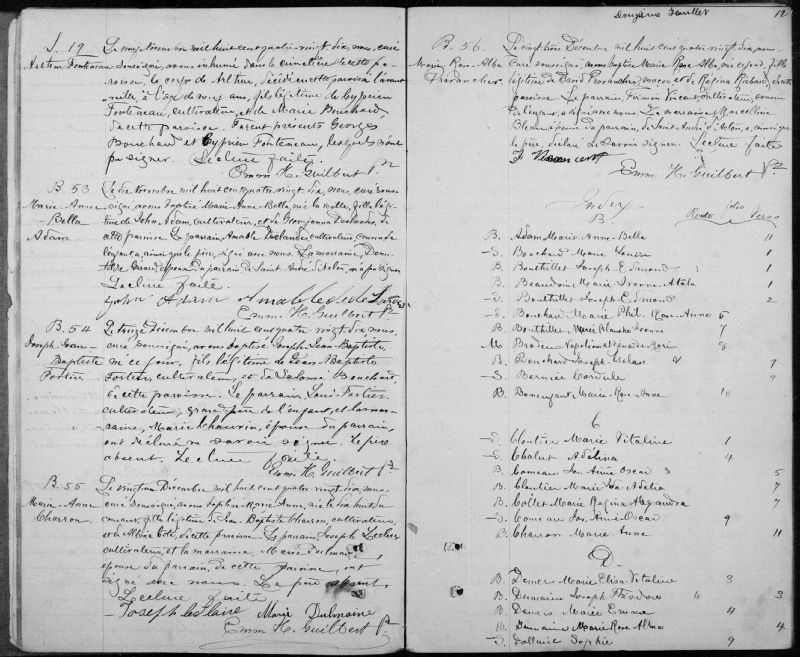 S. 19
Arthur Fonteneau
Le neuf Novembre mil huit cent quatre-vingt-dix, nous, curé
soussigné, avons inhumé dans le cimetière de cette pa-
roisse le corps de Arthur, décédé en cette paroisse l'avant
veille, à l'âge de neuf ans, fils légitime de Cyprien
Fonteneau, cultivateur, et de Marie Bouchard,
de cette paroisse. Furent présents Georges
Bouchard et Cyprien Fonteneau, lesquels n'ont
pu signer. Lecture faite
Emm. H. Guilbert Ptr
B. 53
Marie-Anne
Bella
Adam
Le dix Novembre mil huit cent quatre vingt dix, nous, curé sous
signé, avons baptisé Marie-Anne-Bella, née la veille, fille légi
time de John Adam, cultivateur, et de Georgianna Deslandes, de
cette paroisse. Le parrain, Amable Deslandes, cultivateur, cousin de
l'enfant, a, ainsi que le père, signé avec nous. La marraine,
épouse du parrain, de Saint André d'Acton, n'a pu signer
Lecture faite
John Adam Amable
Emm. H. Guilbert Ptr
B. 54
Joseph-Jean-
Baptiste
Fortier
Le treize Décembre mil huit cent quatre vingt dix, nous
curé soussigné, avons baptisé Joseph-Jean-Baptiste,
né ce jour, fils légitime de Jean-Baptiste
Fortier, cultivateur, et de Bouchard,
de cette paroisse. Le parrain, Louis Fortier,
cultivateur, grand-père de l'enfant, et la mar-
raine, Marie épouse du parrain,
ont déclaré ne savoir signer. Le père
absent. Lecture faite
Emm. H. Guilbert Ptr
B. 55
Marie-Anne
Charron
Le vingt un Décembre mil huit cent quatre vingt dix, nous
curé soussigné, avons baptisé Marie-Anne, née le dix huit du
courant, fille légitime de Jean-Baptiste Charron, cultivateur,
et de Côté, de cette paroisse. Le parrain, Joseph Leclair,
cultivateur, et la marraine, Marie Dulmaine,
épouse du parrain, de cette paroisse, ont
signé avec nous. Le père absent.
Lecture faite
Joseph LeClaire Marie Dulmaine
Emm. H. Guilbert Ptr
Douzième Feuillet 12
B. 56
Marie-Rose-Alba
Provancher
Le vingt trois Décembre mil huit cent quatre vingt dix, nous
curé soussigné, avons baptisé Marie Rose Alba, née ce jour, fille
légitime de David Provancher, maçon, et de Regina Richard, de cette
paroisse. Le parrain, Firmin Vincent, cultivateur, cousin
de l'enfant, a signé avec nous. La marraine, Marcelline
épouse du parrain, de Saint André d'Acton, a, ainsi que
le père, déclaré ne savoir signer. Lecture faite
F Vincent
Emm. H. Guilbert Ptr
Index
B. Recto folio Verso
B. Adam Marie-Anne-Bella 11
S. Bouchard Marie Louise 1
B. Bouthillet Joseph Esmond 1
B. Beaudoin Marie Yvonne Atala 1
S. Bouthillet Joseph Esmond 2
S. Bouchard Marie Phil. Rose-Anne 6
B. Bouthillet Marie Blanche Yvonne 7
M Brodeur Napoléon et Marie 8
B. Bouchard Joseph 9
S. Bernier Cordule 9
B. Marie-Rose-Anne 10
C
S. Cloutier Marie Vitaline 1
S. Chalut Adélina 4
B. Comeau Jos. Aimé Oscar 5
B. Cloutier Marie Adélia 7
B. Collet Marie Regina Alexandra 7
S. Comeau Jos. Aimé Oscar 9
B. Charron Marie Anne 11
D.
B. Demers Marie Elisa Vitaline 3
B. Dumaine Joseph Théodore 3
B. Demers Marie Emma 4
B. Dumaine Marie Rose Alma 4
S. Sophie 9